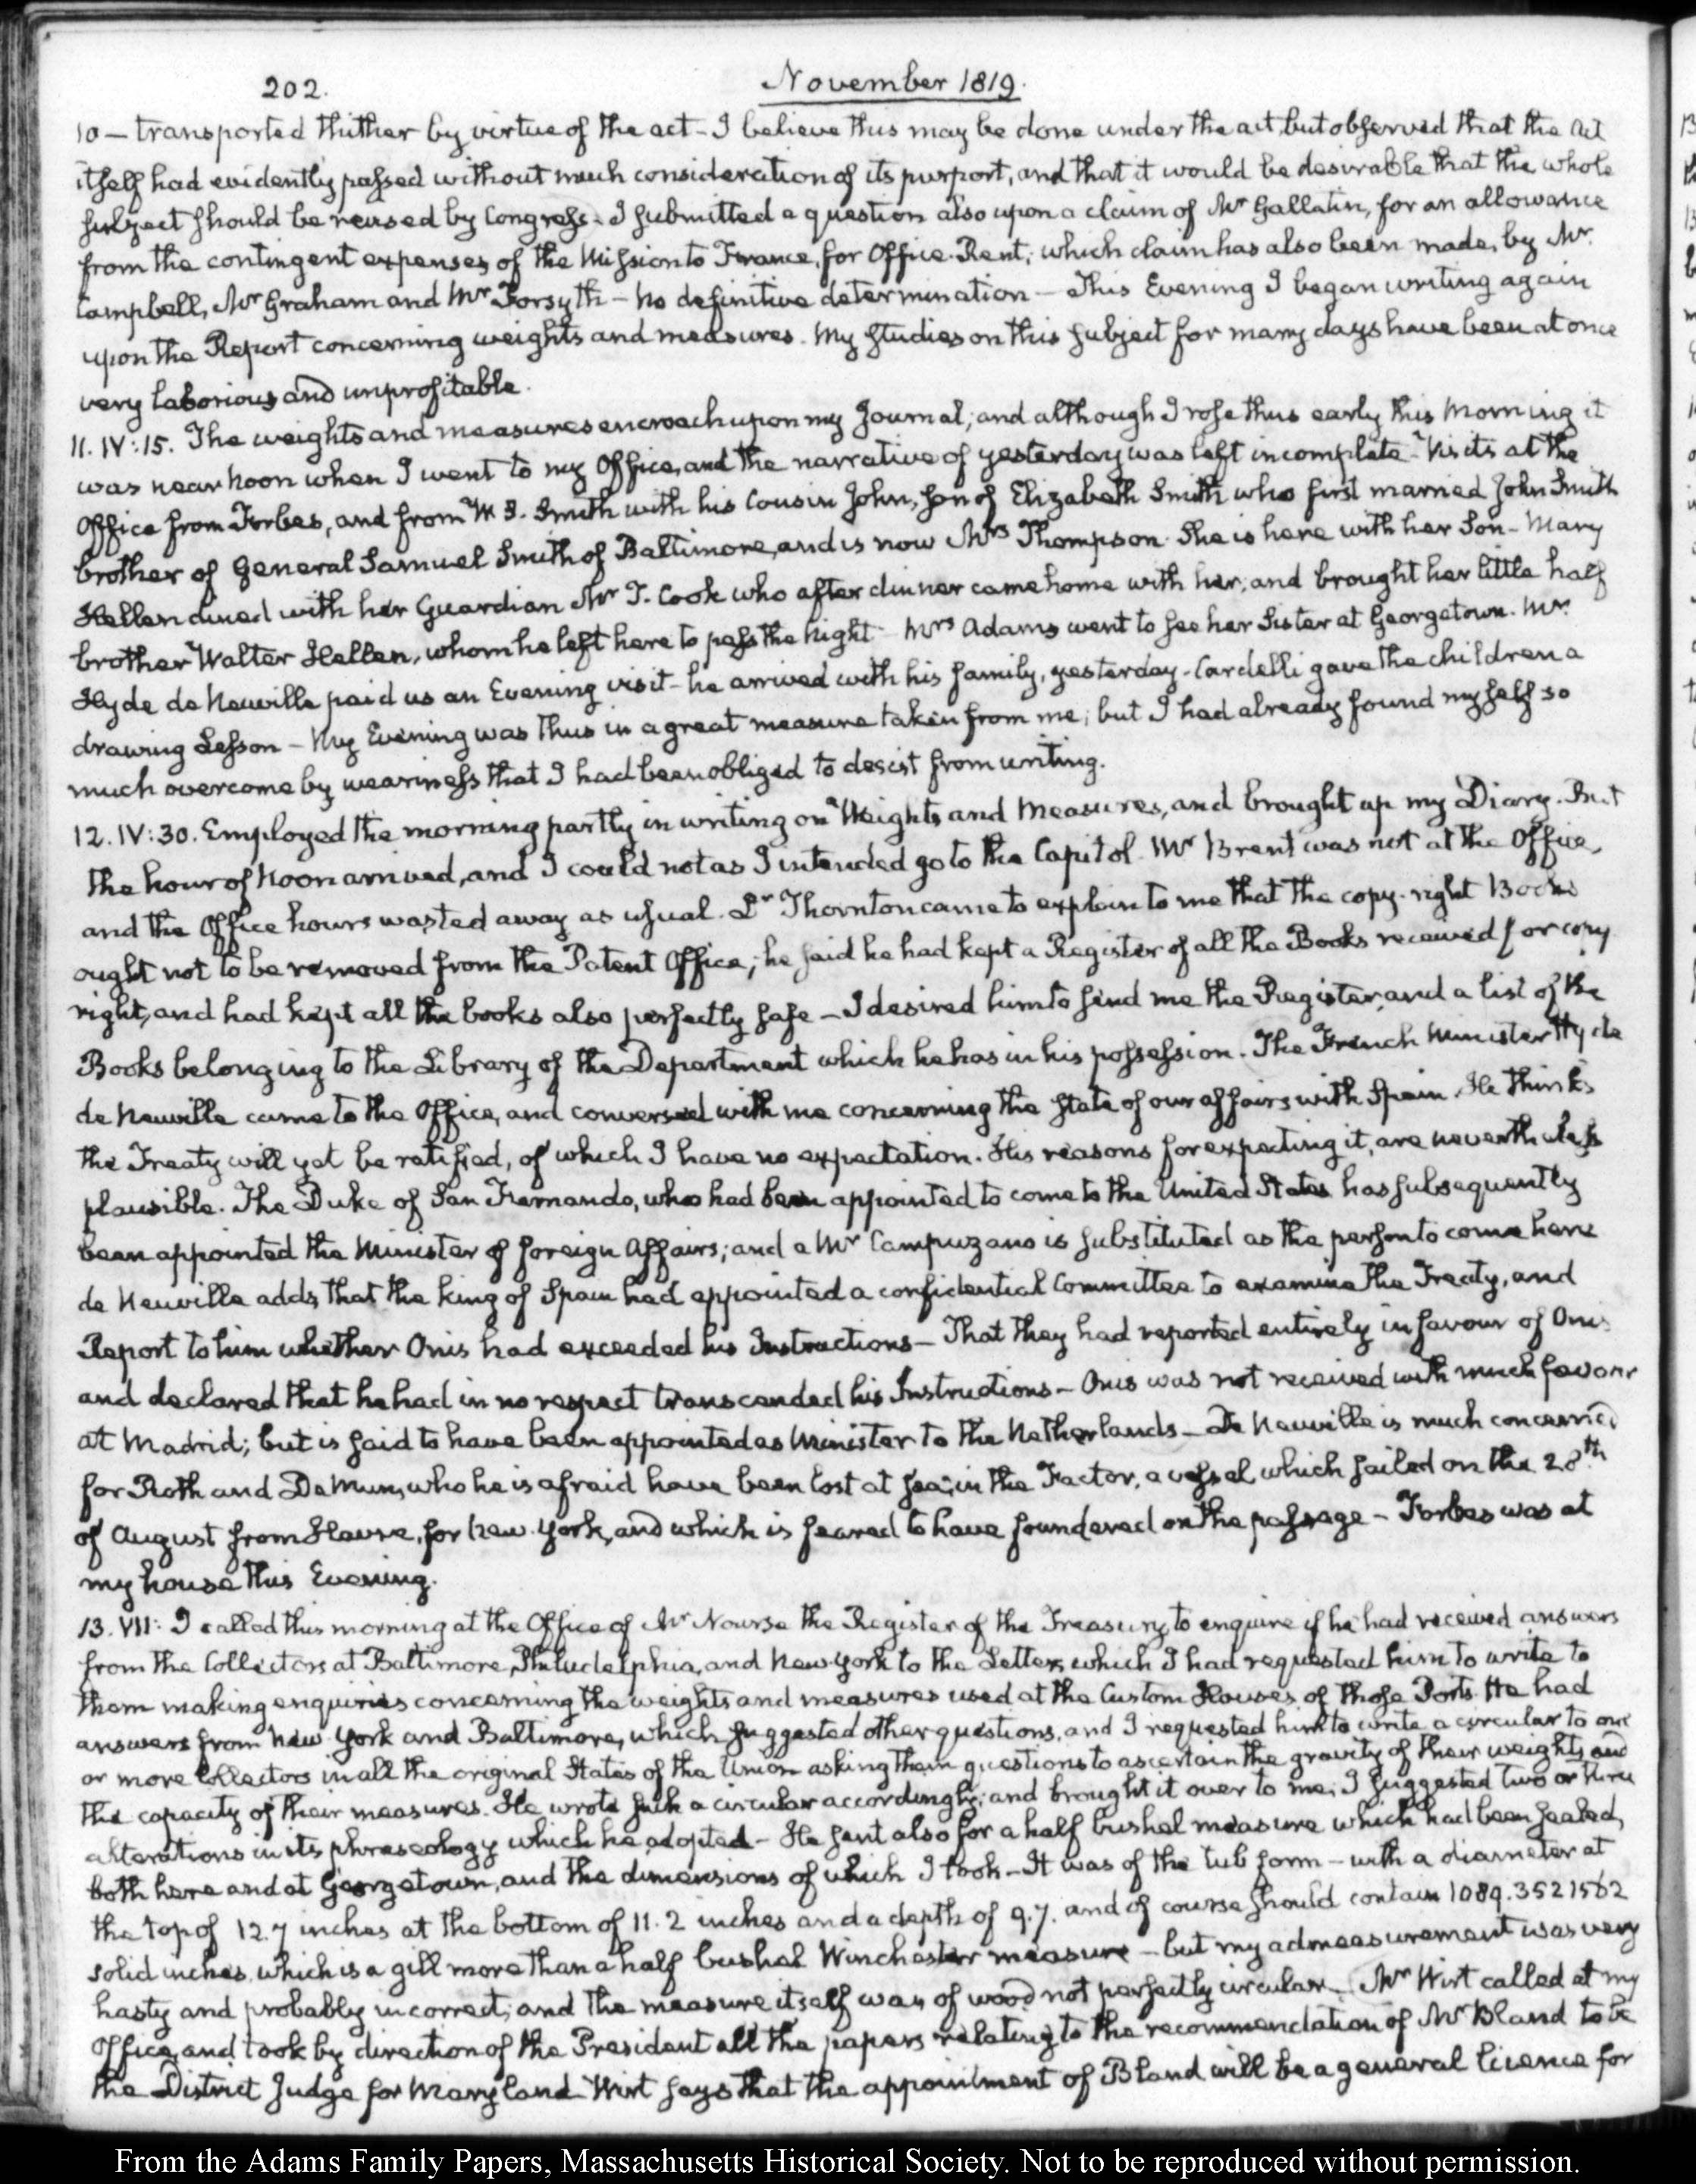 202.
November 1819.
10 — transported thither by virtue of the act - I believe this may be done under the act, but observed that the Act
itself had evidently passed without much consideration of its purport, and that it would be desirable that the whole
subject should be revised by Congress - I submitted a question also upon a claim of Mr Gallatin, for an allowance
from the contingent expenses of the Mission to France, for Office-Rent; which claim has also been made, by Mr.
Campbell, Mr Graham and Mr Forsyth - No definitive determination - This Evening I began writing again
upon the Report concerning weights and measures. My studies on this subject for many days have been at once
very laborious and unprofitable.
11. IV:15. The weights and measures encroach upon my Journal; and although I rose thus early this Morning it
was near Noon when I went to my Office, and the narrative of yesterday was left incomplete - Visits at the
Office from Forbes, and from W. S. Smith with his Cousin John, son of Elizabeth Smith who first married John Smith
brother of General Samuel Smith of Baltimore, and is now Mrs Thompson. She is here with her Son - Mary
Hellen dined with her Guardian Mr T. Cook who after dinner came home with her; and brought her little half
brother Walter Hellen, whom he left here to pass the Night - Mrs Adams went to see her Sister at Georgetown. Mr.
Hyde de Neuville paid us an Evening visit - he arrived with his family, yesterday - Cardelli gave the children a
drawing Lesson - My Evening was thus in a great measure taken from me; but I had already found myself so
much overcome by weariness that I had been obliged to desist from writing.
12. IV:30. Employed the morning partly in writing on Weights and Measures, and brought up my Diary. But
the hour of Noon arrived, and I could not as I intended go to the Capitol. Mr Brent was not at the Office,
and the Office hours wasted away as usual. Dr Thornton came to explain to me that the copy-right Books
ought not to be removed from the Patent Office; he said he had kept a Register of all the Books received for copy
right, and had kept all the books also perfectly safe - I desired him to send me the Register, and a list of the
Books belonging to the Library of the Department which he has in his possession. The French Minister Hyde
de Neuville came to the Office, and conversed with me concerning the state of our affairs with Spain. He thinks
the Treaty will yet be ratified, of which I have no expectation. His reasons for expecting it, are nevertheless
plausible. The Duke of San Fernando, who had been appointed to come to the United States has subsequently
been appointed the Minister of foreign Affairs; and a Mr Campuzano is substituted as the person to come here
de Neuville adds, that the king of Spain had appointed a confidential Committee to examine the Treaty, and
Report to him whether Onis had exceeded his Instructions - That they had reported entirely in favour of Onis
and declared that he had in no respect transcended his Instructions - Onis was not received with much favour
at Madrid; but is said to have been appointed as Minister to the Netherlands - De Neuville is much concerned
for Roth and De Mun, who he is afraid have been lost at sea; in the Factor, a vessel which sailed on the 28th
of August from Havre, for New-York, and which is feared to have foundered on the passage - Forbes was at
my house this Evening.
13. VII: I called this morning at the Office of Mr Nourse the Register of the Treasury, to enquire if he had received answers
from the Collectors at Baltimore, Philadelphia, and New York to the Letters which I had requested him to write to
them making enquiries concerning the weights and measures used at the Custom Houses of those Ports. He had
answers from New York and Baltimore, which suggested other questions, and I requested him to write a circular to one
or more Collectors in all the original States of the Union asking them questions to ascertain the gravity of their weights and
the capacity of their measures. He wrote such a circular accordingly; and brought it over to me; I suggested two or three
alterations in its phraseology which he adopted - He sent also for a half bushel measure which had been sealed,
both here and at Georgetown, and the dimensions of which I took - It was of the tub form - with a diameter at
the top of 12.7 inches at the bottom of 11.2 inches and a depth of 9.7. and of course should contain 1089.3521562
solid inches, which is a gill more than a half bushel Winchester measure - but my admeasurement was very
hasty and probably incorrect; and the measure itself was of wood not perfectly circular - Mr Wirt called at my
Office, and took by direction of the President all the papers relating to the recommendation of Mr Bland to be
the District Judge for Maryland - Wirt says that the appointment of Bland will be a general licence for
From the Adams Family Papers, Massachusetts Historical Society. Not to be reproduced without permission.